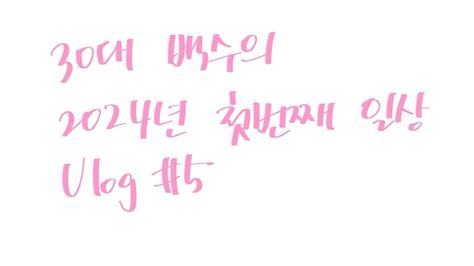 30대 백수의
2024년 첫번째 일상
Vlog #5